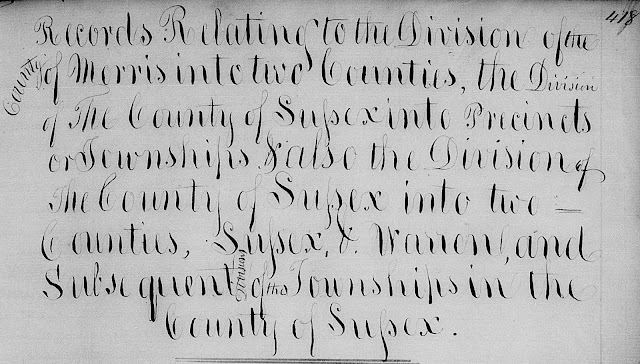 418
Records Relating to the Division of the
County
of Morris into two Counties, the Division
of The County of Sussex into Precincts
or Townships & also the Division of
The County of Sussex into two =
Counties, Sussex, & Warren, and
Subsequent of the Townships in the
County of Sussex.